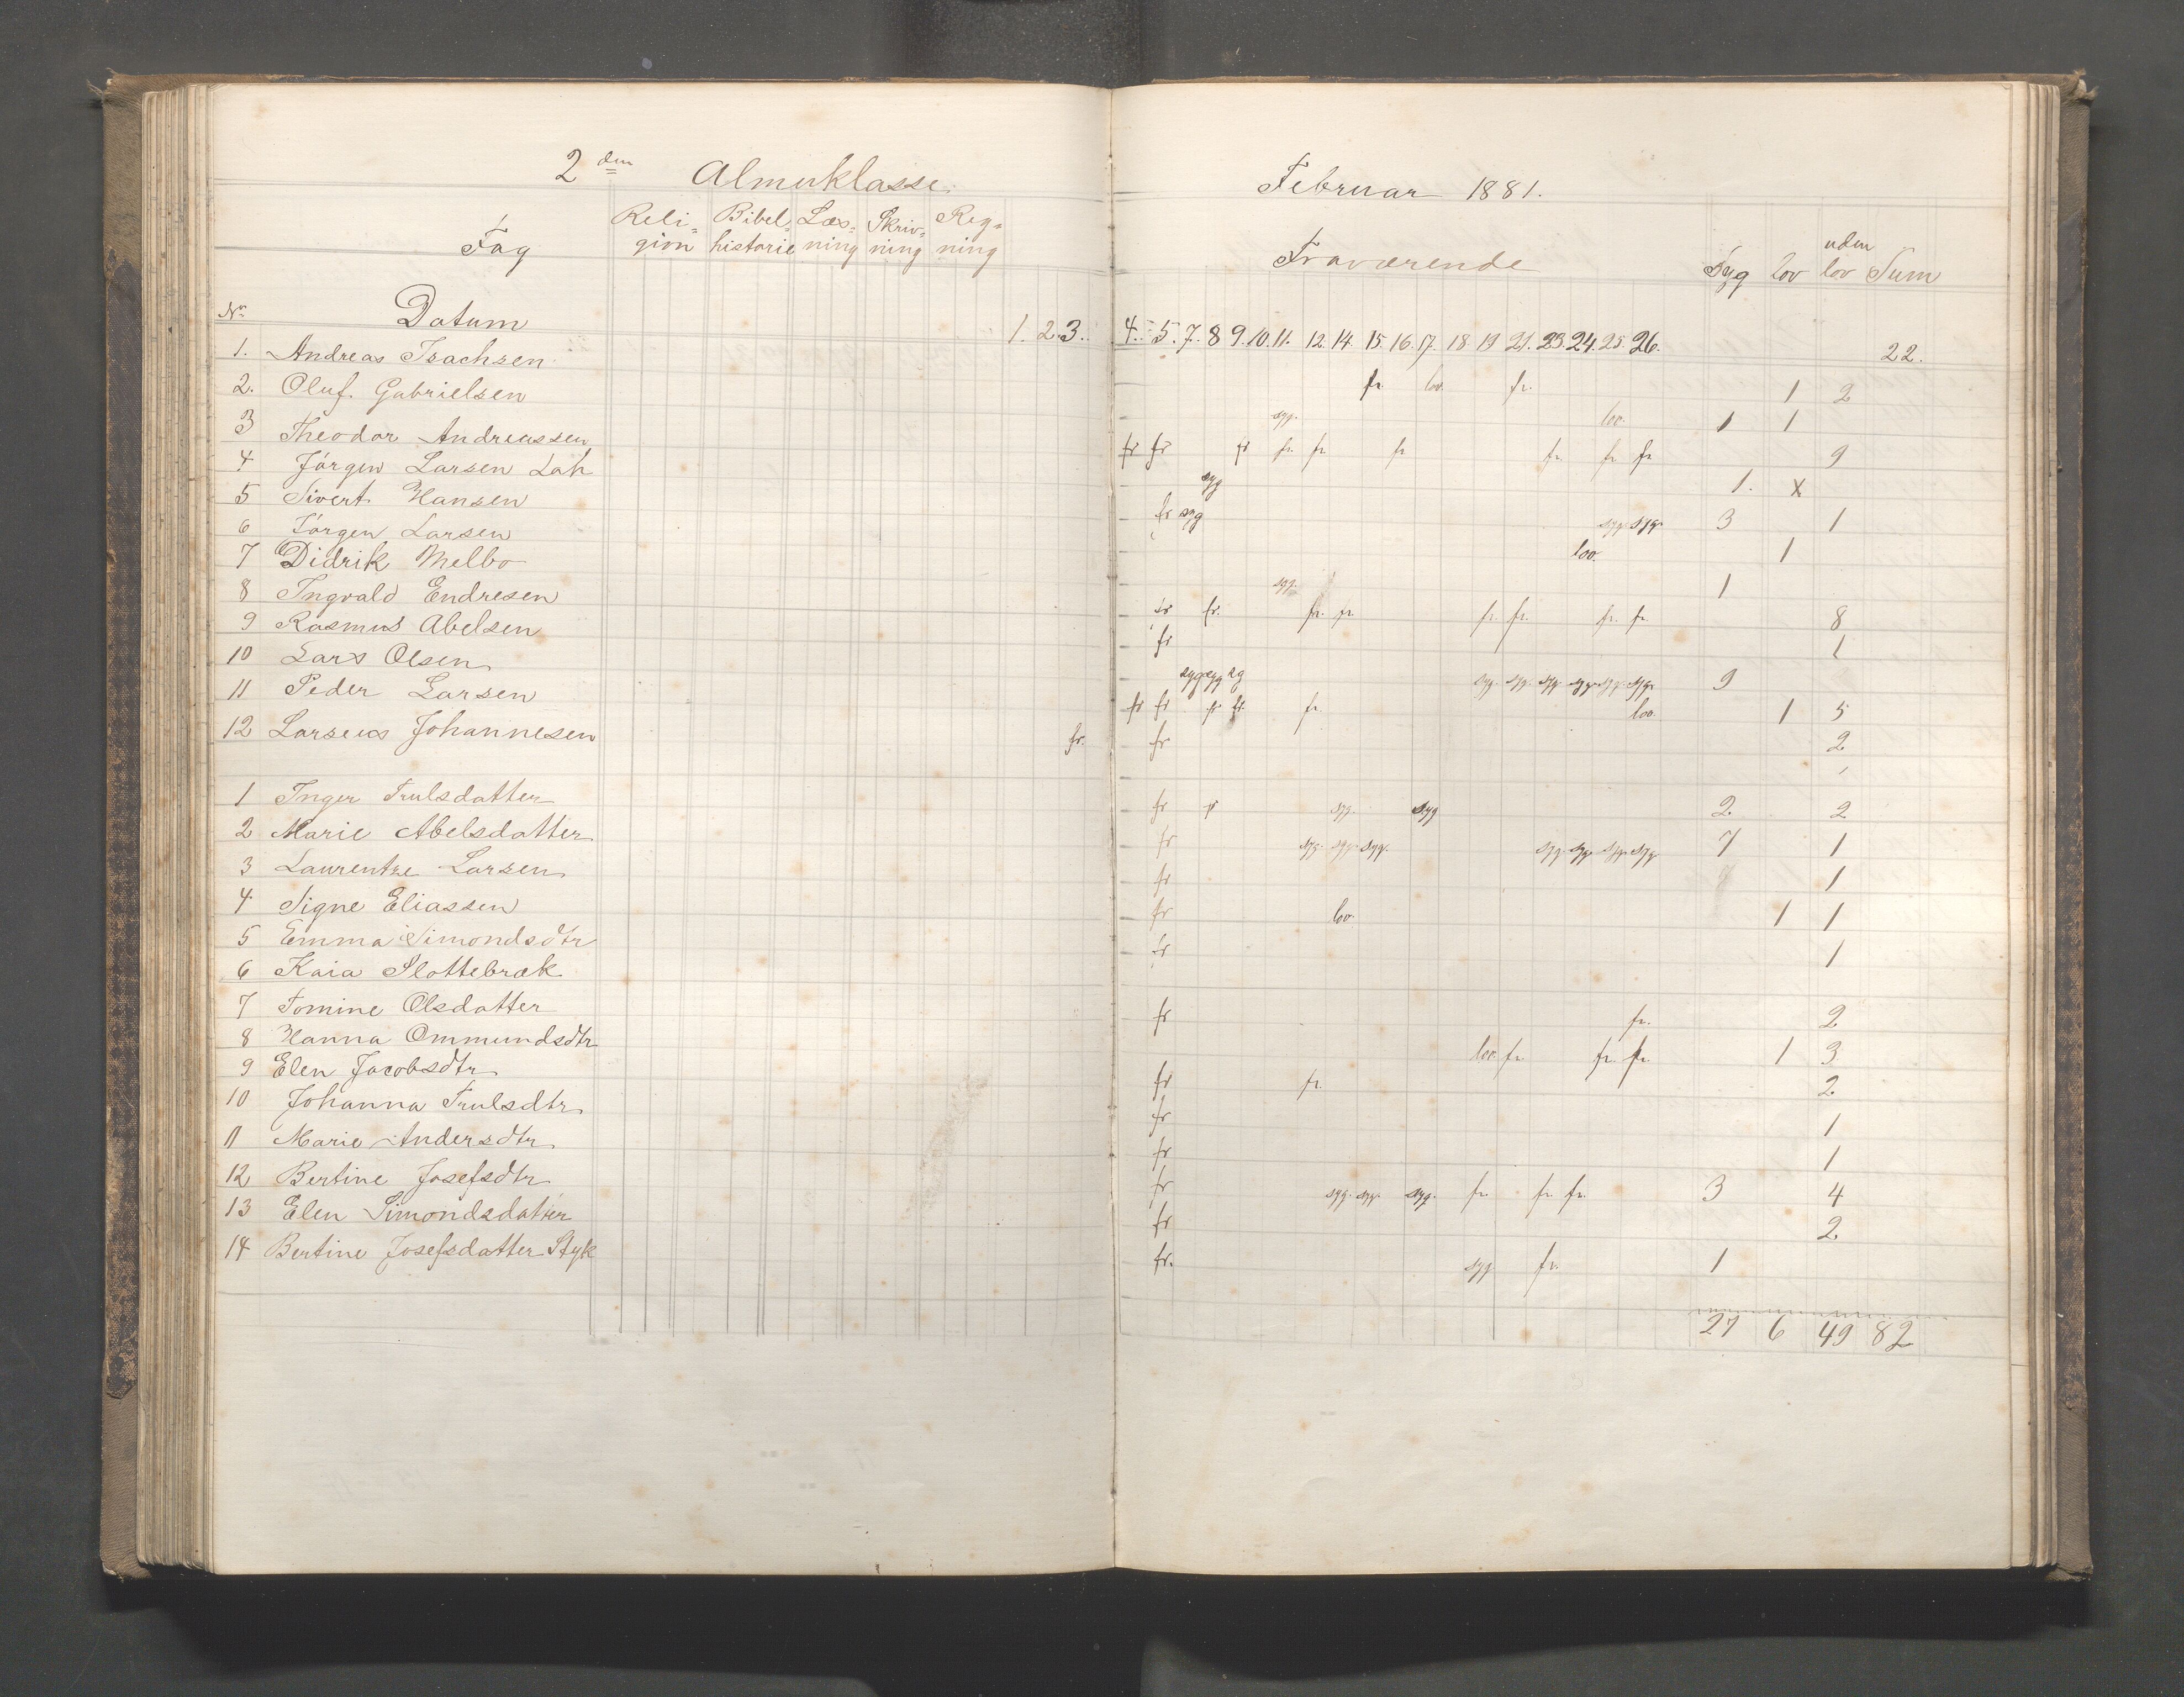 2den Almueklasse.
Februar 1881.
Fag Reli= gion Bibel= historie Læs= ning Skriv= ning Reg= ning
Fraværende Syg lov uden lov Sum
No Datum 1. 2. 3. 4. 5. 7. 8 9. 10. 11. 12. 14. 15. 16. 17. 18 19 21. 23. 24. 25. 26.
22.
1. Andreas Isachsen fr. lov. fr. 1 2
2. Oluf Gabrielsen syg. lov. 1 1
3 Theodor Andreassen fr fr fr fr. fr. fr fr. fr fr 9
4 Jörgen Larsen Lah syg 1. x
5 Sivert Hansen fr syg syg. syg. 3 1
6 Jörgen Larsen lov. 1
7 Didrik Melbo syg. 1
8 Ingvald Endresen fr fr. fr. fr. fr. fr. fr. fr. 8
9 Rasmus Abelsen fr 1
10 Lars Olsen syg syg sg syg. syg. syg. syg. syg. syg. 9
11 Peder Larsen fr fr fr fr. fr. lov. 1 5
12 Larseus Johannesen fr. fr 2
1 Inger Trulsdatter fr fr syg. syg 2 2
2 Marie Abelsdatter fr syg. syg. syg. syg. syg. syg. syg 7 1
3 Laurentze Larsen fr 1
4 Signe Eliassen fr lov. 1 1
5 Emma Simondsdtr fr 1
6 Kaia Slottebræk
7 Tomine Olsdatter fr fr. 2
8 Hanna Ommundsdtr lov. fr. fr. fr. 1 3
9 Elen Jacobsdtr fr fr. 2
10 Johanna Trulsdtr fr 1
11 Marie Andersdtr fr 1
12 Bertine Josefsdtr fr syg. syg. syg. fr. fr. fr. 3 4
13 Elen Simondsdatter fr 2
14 Bertine Josefsdatter Styk fr. syg fr. 1
27 6 49 82